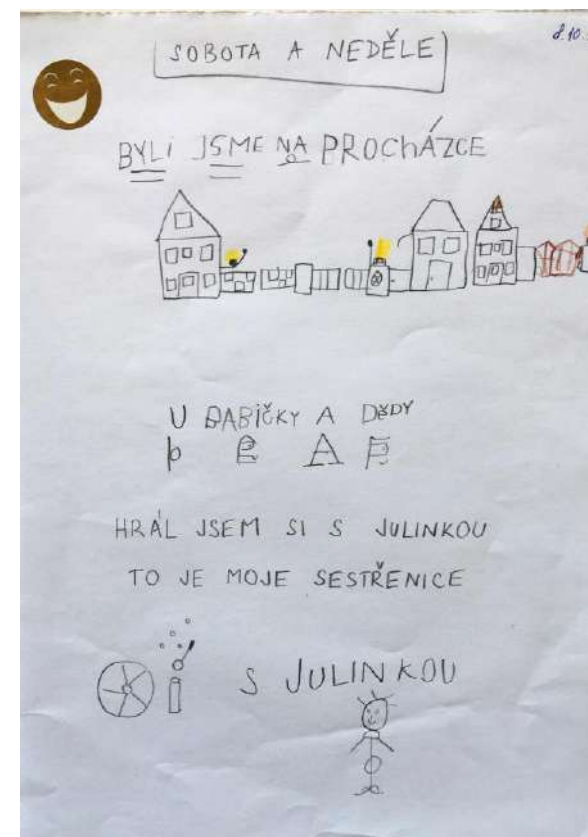 8.10.
SOBOTA A NEDĚLE
BYLI JSME NA PROCHÁZCE
U BABIČKY A DĚDY
HRÁL JSEM SI S JULINKOU
TO JE MOJE SESTŘENICE
S JULINKOU